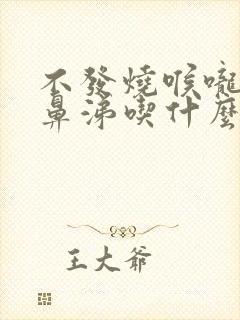 不發燒喉嚨
鼻涕喫什麼
王大爺